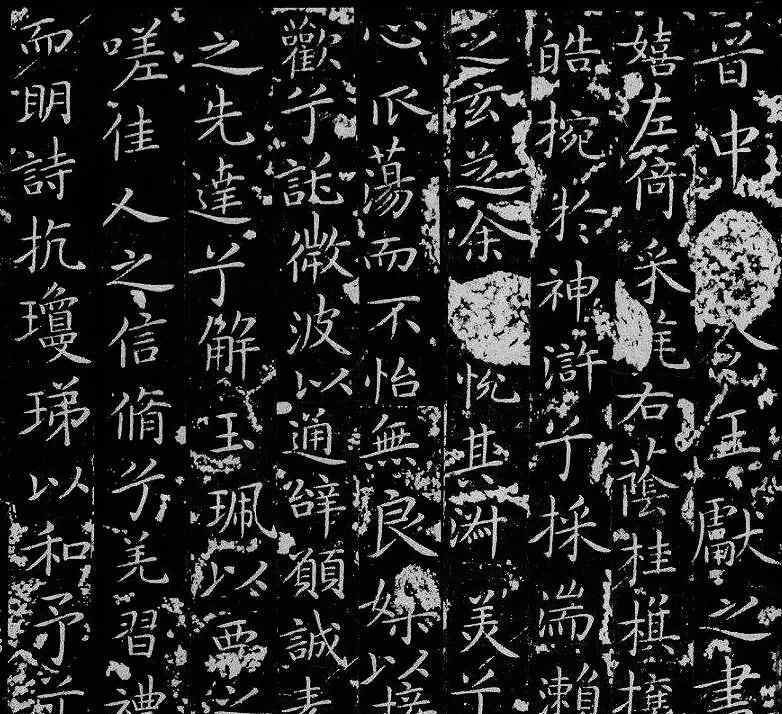 晉中王獻之書
嬉左倚采旄右蔭桂旗攘
皓捥於神滸兮採湍瀨
之玄芝余悅其淑美兮
心蕩而不怡無良媒以接
歡兮託微波以通辭願誠素
之先達兮解玉珮以要之
嗟佳人之信脩兮羌習禮
而明詩抗瓊珶以和予兮